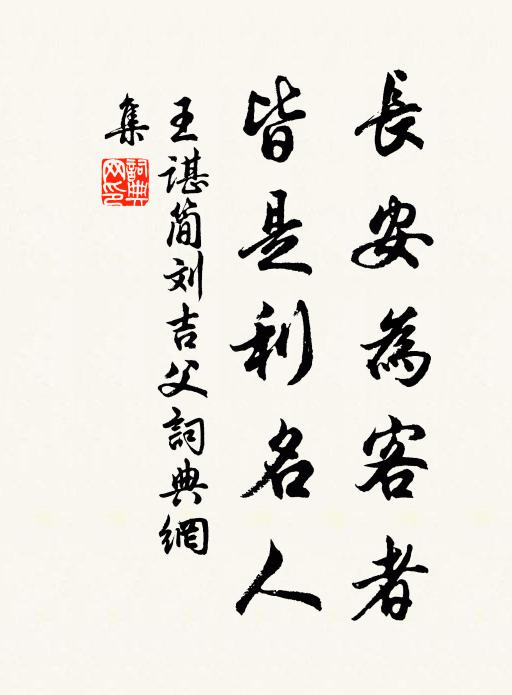 長安為客者
皆是利名人
王諶簡刘吉父詞典網
集
詞典
网印